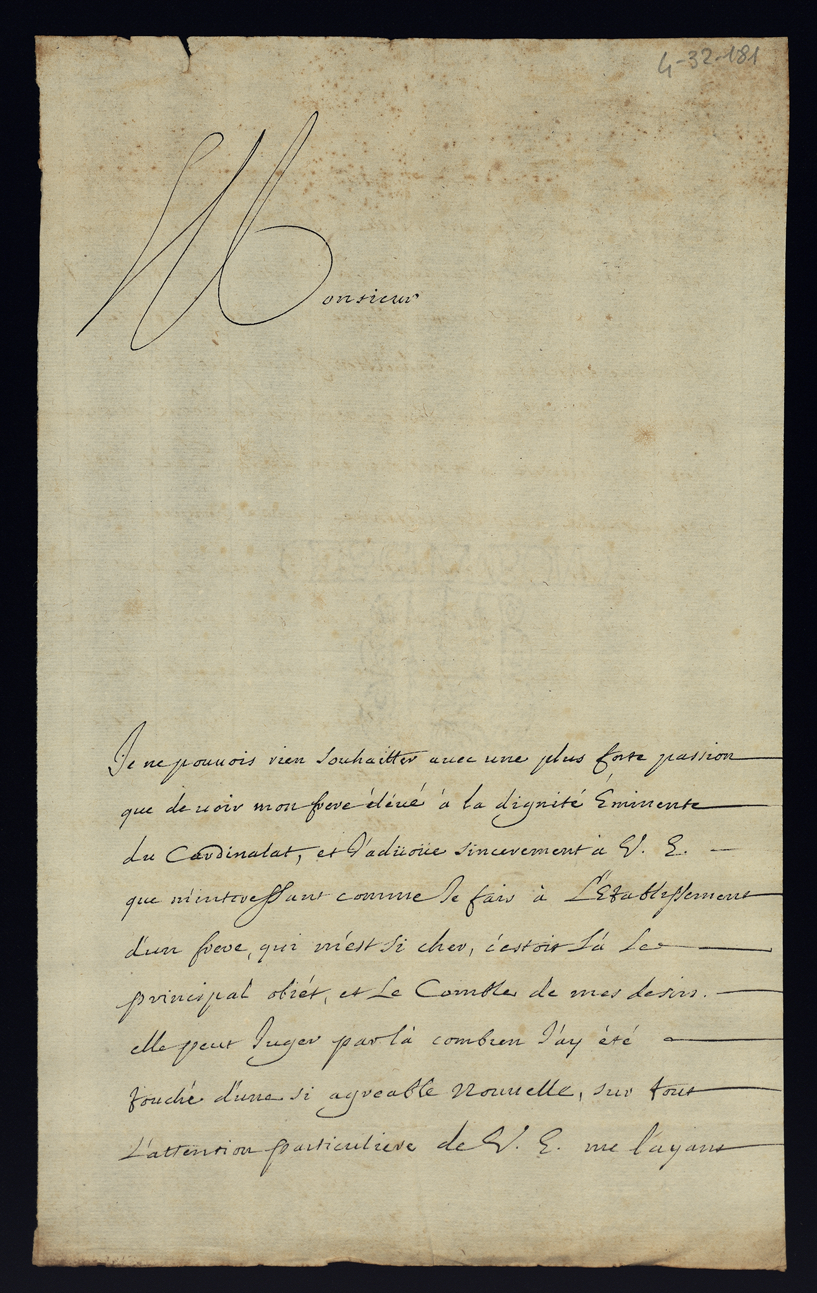 4-32-181
Monsieur
Je ne pouuois rien souhaitter auec une plus forte passion
que de uoir mon frere éléué à la dignité Éminente
du Cardinalat, et J'adüoüe sincerement à V. E.
que m'interessant comme Je fais à L'Etablissement
d'un frere, qui m'est si cher, c'estoit Là Le
principal obiét, et Le Comble de mes desirs.
elle peut Juger par là combien J'ay été
touché d'une si agreable Nouuelle, sur tout
L'attention particuliere de V. E. me l'ayant